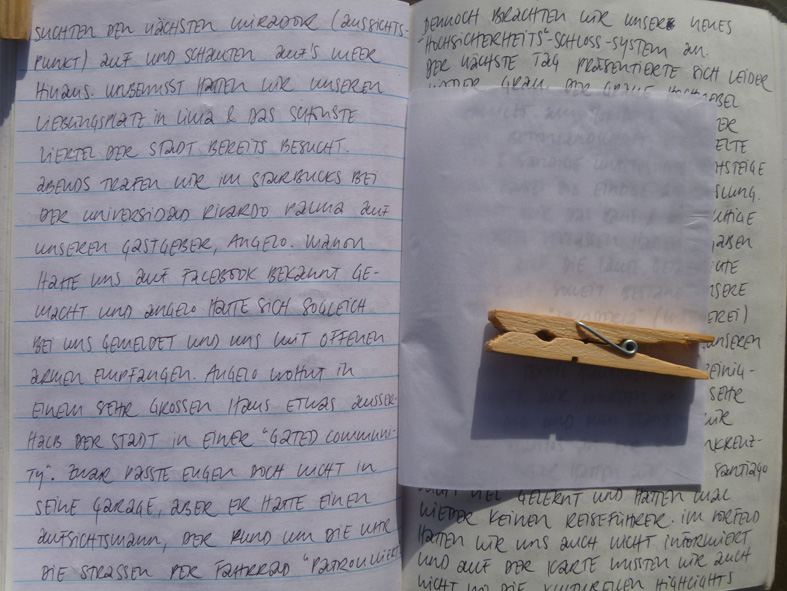 SUCHTEN DEN NÄCHSTEN MIRADOR (AUSSICHTS-
PUNKT) AUF UND SCHAUTEN AUF'S MEER
HINAUS. UNBEWUSST HATTEN WIR UNSEREN
LIEBLINGSPLATZ IN LIMA & DAS SCHÖNSTE
VIERTEL DER STADT BEREITS BESUCHT.
ABENDS TRAFEN WIR IM STARBUCKS BEI
DER UNIVERSIDAD RICARDO PALMA AUF
UNSEREN GASTGEBER, ANGELO. MANON
HATTE UNS AUF FACEBOOK BEKANNT GE-
MACHT UND ANGELO HATTE SICH SOGLEICH
BEI UNS GEMELDET UND UNS MIT OFFENEN
ARMEN EMPFANGEN. ANGELO WOHNT IN
EINEM SEHR GROSSEN HAUS ETWAS AUSSER-
HALB DER STADT IN EINER "GATED COMMUNI-
TY". ZWAR PASSTE EUGEN DOCH NICHT IN
SEINE GARAGE, ABER ER HATTE EINEN
AUFSICHTSMANN, DER RUND UM DIE UHR
DIE STRASSEN PER FAHRRAD "PATROUILLIERT
DENNOCH BRACHTEN WIR UNSERE NEUES
"HOCHSICHERHEITS"-SCHLOSS-SYSTEM AN.
DER NÄCHSTE TAG PRÄSENTIERTE SICH LEIDER
WIEDER GRAU. DER GRAUE HOCHNEBEL
ER
ELTE
HSTEIGE
SLUNG.
UHIGE
GABEN
UTE
NSERE
EREI)
UNSEREN
EINIG-
SEHR
WIR
NKREUZ-
SANTIAGO
NICHT VIEL GELERNT UND HATTEN MAL
WIEDER KEINEN REISEFÜHRER. IM VORFELD
HATTEN WIR UNS AUCH NICHT INFORMIERT
UND AUF DER KARTE WUSSTEN WIR AUCH
NICHT WO DIE KULTURELLEN HIGHLIGHTS